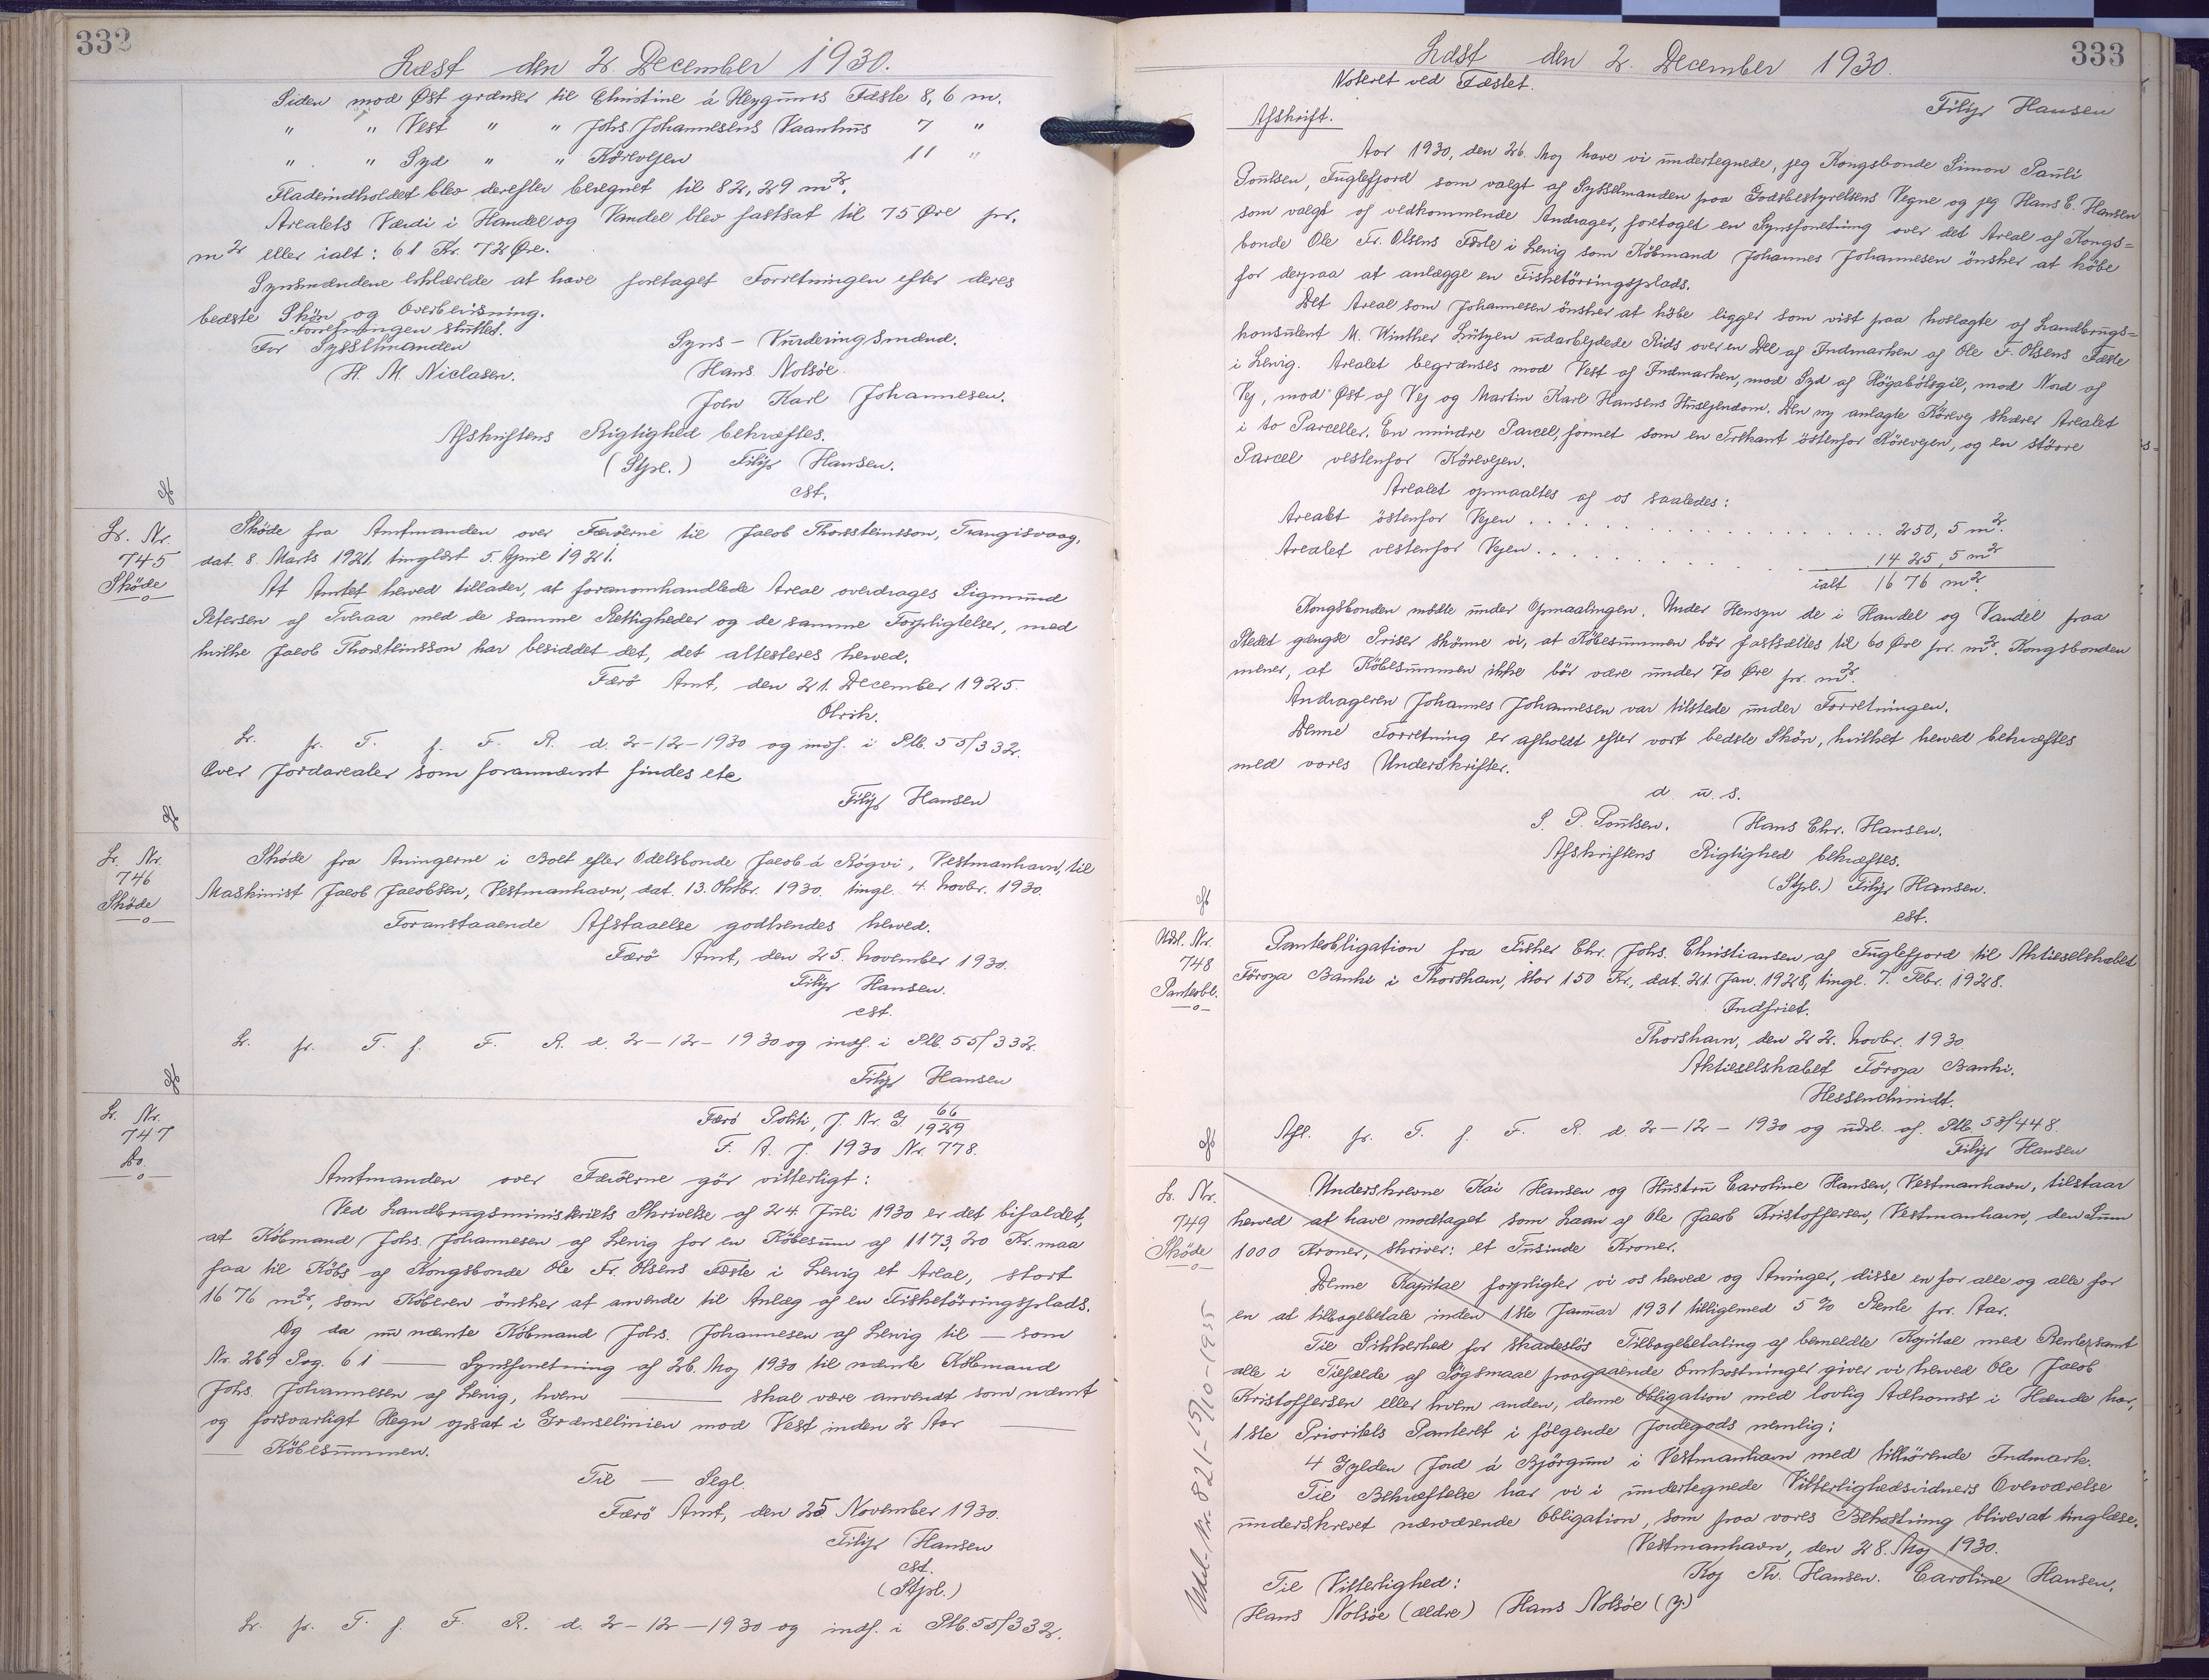 332
Læst den 2. December 1930.
Siden mod Øst grænser til Christine á Heygums Fæste 8,6 m.
" " Vest " " Johs. Johannesens Vaanhus 7 "
" " Syd " " Körevejen 11 "
Fladeindholdet blev derefter beregnet til 82,29 m².
Arealets Værdi i Handel og Vandel blev fastsat til 75 Øre pr.
m² eller ialt: 61 Kr. 72 Øre.
Synsmændene erklærede at have foretaget Forretningen efter deres
bedste Skön og Overbevisning.
Forretningen sluttet.
For Sysselmanden Syns- Vurderingsmænd.
H. M. Niclasen. Hans Nolsöe.
Joen Karl Johannesen.
Afskriftens Rigtighed bekræftes.
(Stpl.) Filip Hansen.
cst.
Lr. Nr.
745
Sköde
—o—
Sköde fra Amtmanden over Færöerne til Jacob Thorsteinsson, Trangisvaag,
dat. 8. Marts 1921, tinglæst 5. April 1921.
At Amtet herved tillader, at foranomhandlede Areal overdrages Sigmund
Petersen af Tvraa med de samme Rettigheder og de samme Forpligtelser, med
hvilke Jacob Thorsteinsson har besiddet det, det attesteres herved.
Færö Amt, den 21. December 1925.
Olrik.
Lr. pr. T. f. F. R. d. 2-12-1930 og indf. i Plb. 55/332.
Over Jordarealer som forannævnt findes ete
Filip Hansen
Lr. Nr.
746
Sköde
—o—
Sköde fra Arvingerne i Boet efter Odelsbonde Jacob á Rógvi, Vestmanhavn, til
Maskinist Jacob Jacobsen, Vestmanhavn, dat. 13. Oktbr. 1930, tingl. 4. Novbr. 1930.
Foranstaaende Afstaaelse godkendes herved.
Færö Amt, den 25. November 1930.
Filip Hansen.
cst.
Lr. pr. T. f. F. R. d. 2-12-1930 og indf. i Plb. 55/332.
Filip Hansen
Lr. Nr.
747
Do.
—o—
Færö Politi, J. Nr. G. 66/1929
F. A. J. 1930 Nr. 778.
Amtmanden over Færöerne gör vitterligt:
Ved Landbrugsministeriets Skrivelse af 24. Juli 1930 er det bifaldet,
at Köbmand Johs. Johannesen af Lervig for en Köbesum af 1173,20 Kr. maa
faa til Köbs af Kongsbonde Ole Fr. Olsens Fæste i Lervig et Areal, stort
1676 m², som Köberen önsker at anvende til Anlæg af en Fisketörringsplads.
Og da nu nævnte Köbmand Johs. Johannesen af Lervig til — som
Nr. 269 Pag. 61 — Synsforretning af 26. Maj 1930 til nævnte Köbmand
Johs. Johannesen af Lervig, hvem — skal være anvendt som nævnt
og forsvarligt Hegn opsat i Grænselinien mod Vest inden 2 Aar —
— Köbesummen.
Til — Segl.
Færö Amt, den 25 November 1930.
Filip Hansen
cst.
(Stpl.)
Lr. pr. T. f. F. R. d. 2-12-1930 og indf. i Plb. 55/332.
333
Læst den 2. December 1930.
Noteret ved Fæstet.
Filip Hansen
Afskrift.
Aar 1930, den 26. Maj have vi undertegnede, jeg Kongsbonde Simon Pauli
Poulsen, Fuglefjord som valgt af Sysselmanden paa Godsbestyrelsens Vegne og jeg Hans C. Hansen
som valgt af vedkommende Andrager, foretaget en Synsforretning over det Areal af Kongs=
bonde Ole Fr. Olsens Fæste i Lervig som Köbmand Johannes Johannesen önsker at köbe
for derpaa at anlægge en Fisketörringsplads.
Det Areal som Johannesen önsker at köbe ligger som vist paa hoslagte af Landbrugs=
konsulent M. Winther Lützen udarbejdede Rids over en Del af Indmarken af Ole F. Olsens Fæste
i Lervig. Arealet begrænses mod Vest af Indmarken, mod Syd af Högabólsgil, mod Nord af
Vej, mod Øst af Vej og Martin Karl Hansens Husejendom. Den ny anlagte Körevej skærer Arealet
i to Parceller. En mindre Parcel, formet som en Trekant östenfor Körevejen, og en större
Parcel vestenfor Körevejen.
Arealet opmaaltes af os saaledes:
Arealet östenfor Vejen . . . . . . . . . . 250,5 m².
Arealet vestenfor Vejen . . . . . . . . . . 1425,5 m²
ialt 1676 m².
Kongsbonden mödte under Opmaalingen. Under Hensyn de i Handel og Vandel paa
Stedet gængse Priser skönne vi, at Köbesummen bör fastsættes til 60 Øre pr. m². Kongsbonden
mener, at Köbesummen ikke bör være under 70 Øre pr. m².
Andrageren Johannes Johannesen var tilstede under Forretningen.
Denne Forretning er afholdt efter vort bedste Skön, hvilket herved bekræftes
med vores Underskrifter.
d. u. s.
S. P. Poulsen. Hans Chr. Hansen.
Afskriftens Rigtighed bekræftes.
(Stpl.) Filip Hansen.
cst.
Udsl. Nr.
748
Panteobl.
—o—
Panteobligation fra Fisker Chr. Johs. Christiansen af Fuglefjord til Aktieselskabet
Föroya Banki i Thorshavn, stor 150 Kr., dat. 21. Jan. 1928, tingl. 7. Febr. 1928.
Indfriet.
Thorshavn, den 22. Novbr. 1930.
Aktieselskabet Föroya Banki.
Hessenchmidt.
Afl. pr. T. f. F. R. d. 2-12-1930 og udsl. af. Plb. 53/448.
Filip Hansen
Lr. Nr.
749
Sköde
—o—
Underskrevne Kai Hansen og Hustru Caroline Hansen, Vestmanhavn, tilstaar
herved at have modtaget som Laan af Ole Jacob Kristoffersen, Vestmanhavn, den Sum
1000 Kroner, skriver: et Tusinde Kroner.
Denne Kapital forpligter vi os herved og Arvinger, disse en for alle og alle for
en at tilbagebetale inden 1ste Januar 1931 tilligemed 5 % Rente pr. Aar.
Til Sikkerhed for skadeslös Tilbagebetaling af bemeldte Kapital med Renter samt
alle i Tilfælde af Sögsmaal paagaaende Omkostninger giver vi herved Ole Jacob
Kristoffersen eller hvem anden, denne Obligation med lovlig Adkomst i Hænde har,
1ste Prioritets Panteret i fölgende Jordegods nemlig:
4 Gylden Jord á Bjórgum i Vestmanhavn med tilhörende Indmark.
Til Bekræftelse har vi i undertegnede Vitterlighedsvidners Overværelse
underskrevet nærværende Obligation, som paa vores Bekostning bliver at tinglæse.
Vestmanhavn, den 28. Maj 1930.
Kaj Th. Hansen. Caroline Hansen.
Til Vitterlighed:
Hans Nolsöe (ældre) Hans Nolsöe (y.)
Udsl. Nr. 821-15/10-1935